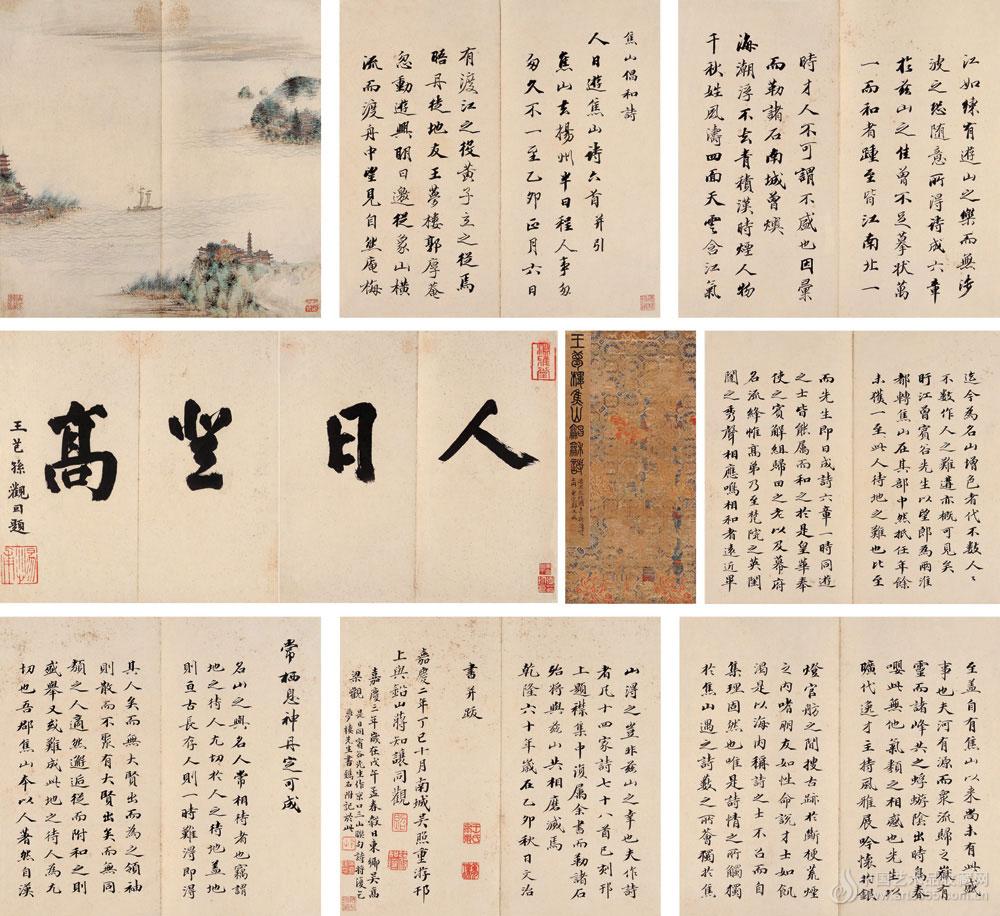 焦山倡和詩
人日遊焦山詩六首并引
焦山去揚州半日程人事匆
匆久不一至乙卯正月六日
有渡江之役黃子立之從焉
晤丹徒地友王夢樓郭厚菴
忽動遊興明日邀從象山橫
流而渡舟中望見自然庵梅
江如練有遊山之樂而無涉
波之恐隨意所得詩成六章
於茲山之佳曾不足摹狀萬
一而和者踵至皆江南北一
時才人不可謂不盛也因彙
而勒諸石南城曾燠
海潮浮不去青積漢時煙人物
千秋姓風濤四面天雲含江氣
人日登高
王芑孫觀回題
王夢樓焦山倡和詩
迄今為名山增色者代不數人人
不數作人之難遘亦概可見矣
盱江曾賓谷先生以望郎為兩淮
都轉焦山在其部中然抵任年餘
未獲一至此人待地之難也比至
而先生即日成詩六章一時同遊
之士皆能屬而和之於是皇華奉
使之賓解組歸田之老以及幕府
名流絳帷高弟乃至梵院之英閨
閤之秀聲相應鳴相和者遠近畢
常栖息神丹定可成
名山之與名人常相待者也竊謂
地之待人尤切於人之待地蓋地
則亘古長存人則一時難得即得
其人矣而無大賢出而為之領袖
則散而不聚有大賢出矣而無同
類之人適然邂逅從而附和之則
盛舉又或難成此地之待人為尤
切也吾郡焦山今以人著然自漢
山得之豈非茲山之幸也夫作詩
者凡十四家詩七十八首已刻邗
上題襟集中復屬余書而勒諸石
殆將與茲山共相磨滅焉
乾隆六十年歲在乙卯秋日文治
書并跋
嘉慶二年丁巳十月南城吳照重游邗
上與鉛山蔣知讓同觀
嘉慶三年歲在戊午孟春穀日東鄉吳嵩
梁觀 是日同賓谷先生作京口三山聯句詩將復乞
夢樓先生書鶴石附記於此
至蓋自有焦山以來尚未有此盛
事也夫河有源而眾流歸之嶽有
靈而諸峰共之蜉蝣陰出時鳥春
嚶此無他氣類之相感也先生以
曠代逸才主持風雅展吟懷於銀
燈官舫之間搜古跡於斷梗荒煙
之内嗜朋友如性命說才士如飢
渴是以海内稱詩之士不召而自
集理固然也唯是詩情之所觸獨
於焦山遇之詩數之所會獨於焦